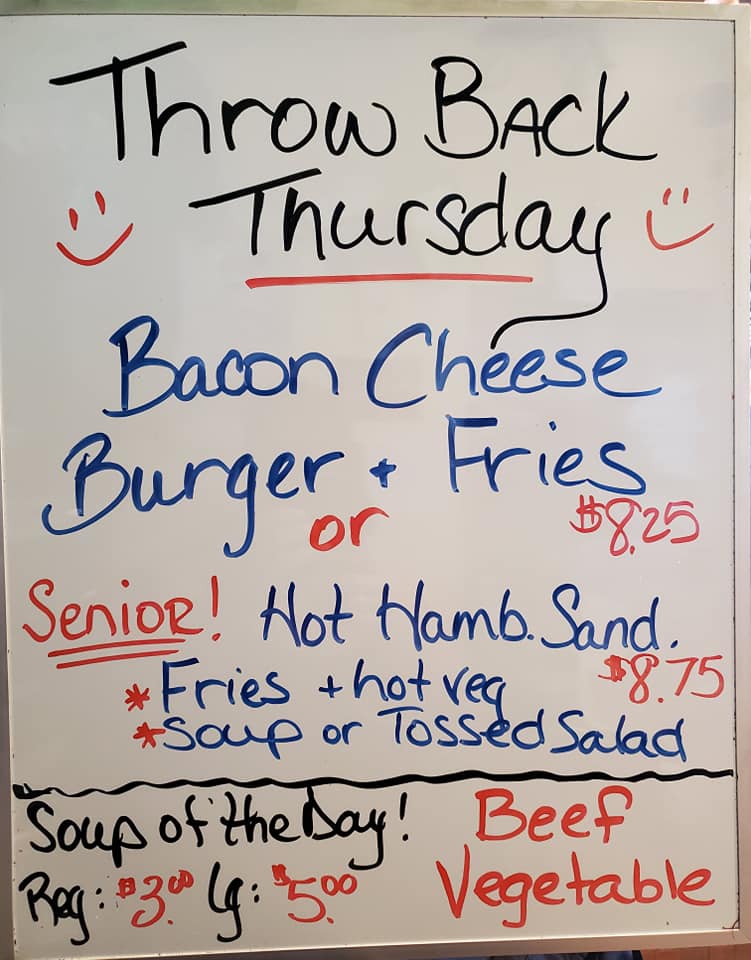 Throw Back
Thursday
Bacon Cheese
Burger + Fries
or $8.25
Senior! Hot Hamb. Sand.
*Fries + hot veg $8.75
*Soup or Tossed Salad
Soup of the Day! Beef
Reg: $3.00 Lg: $5.00 Vegetable